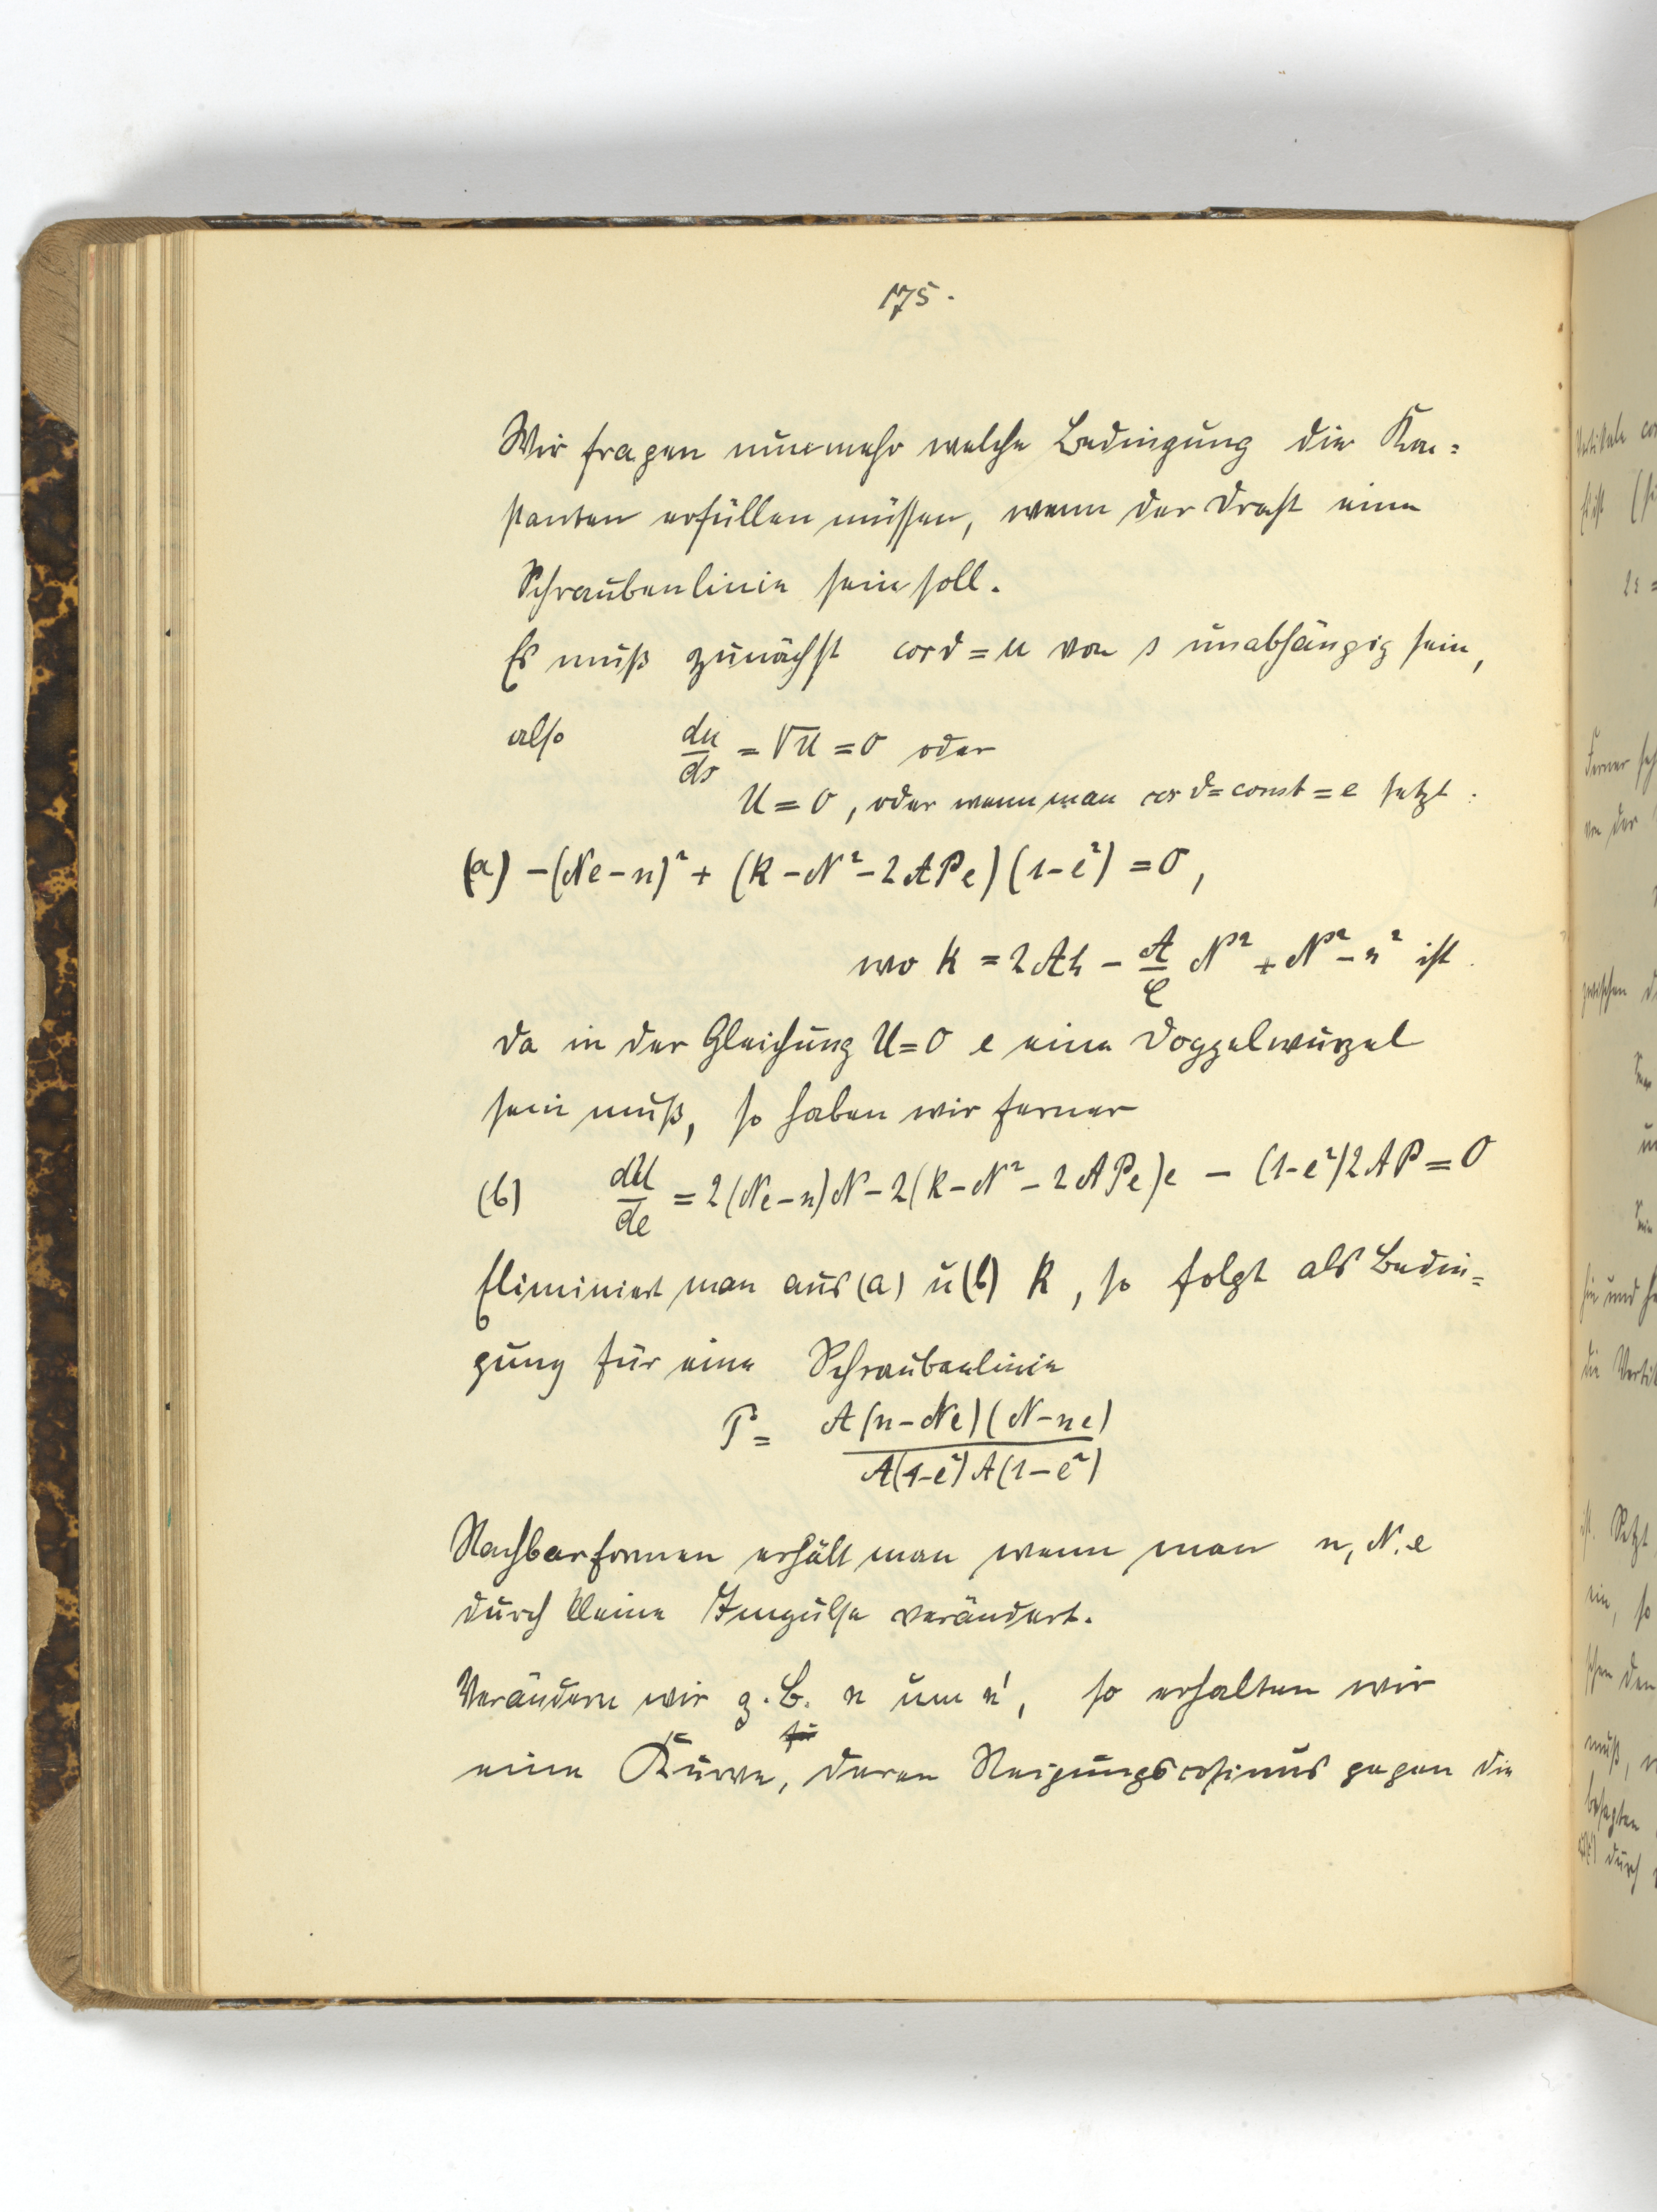 175.
Wir fragen nunmehr welche Bedingung die Kon=
stanten erfüllen müssen, wenn der Draht eine
Schraubenlinie sein soll.
Es muß zunächst cos ϑ = u von s unabhängig sein,
also du/ds = √U = 0 oder
U = 0, oder wenn man cos ϑ = const = e setzt:
(a) −(Ne−n)² + (k−N²−2APe)(1−e²) = 0,
wo k = 2Ah − A/C N² + N² − n² ist.
da in der Gleichung U=0 e eine Doppelwurzel
sein muß, so haben wir ferner
(b) dU/de = 2(Ne−n)N − 2(k−N²−2APe)e − (1−e²)2AP = 0
Eliminiert man aus (a) u (b) k, so folgt als Bedin=
gung für eine Schraubenlinie
P = A(n−Ne)(N−ne) / A(1−e²)A(1−e²)
Nachbarformen erhält man wenn man n, N, e
durch kleine Impulse verändert.
Verändern wir z.B. n um n', so erhalten wir
eine Kurve, deren Neigungscosinus gegen die